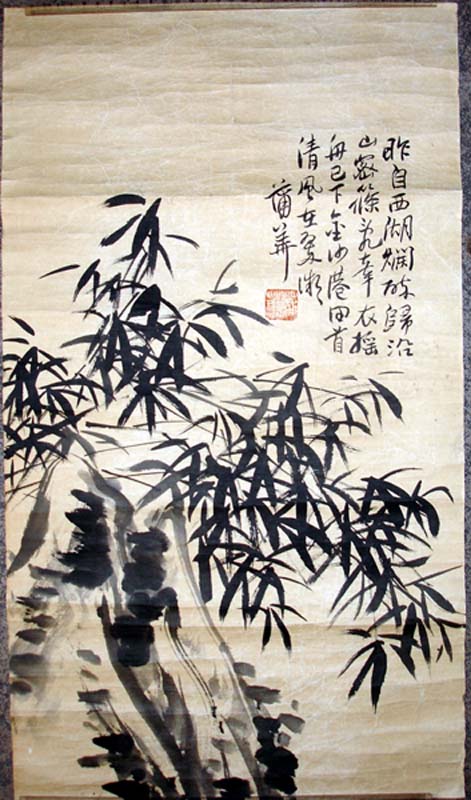 昨自西湖爛醉歸沿
山密篠亂牽衣搖
舟已下金沙港回首
清風在翠微
蒲華